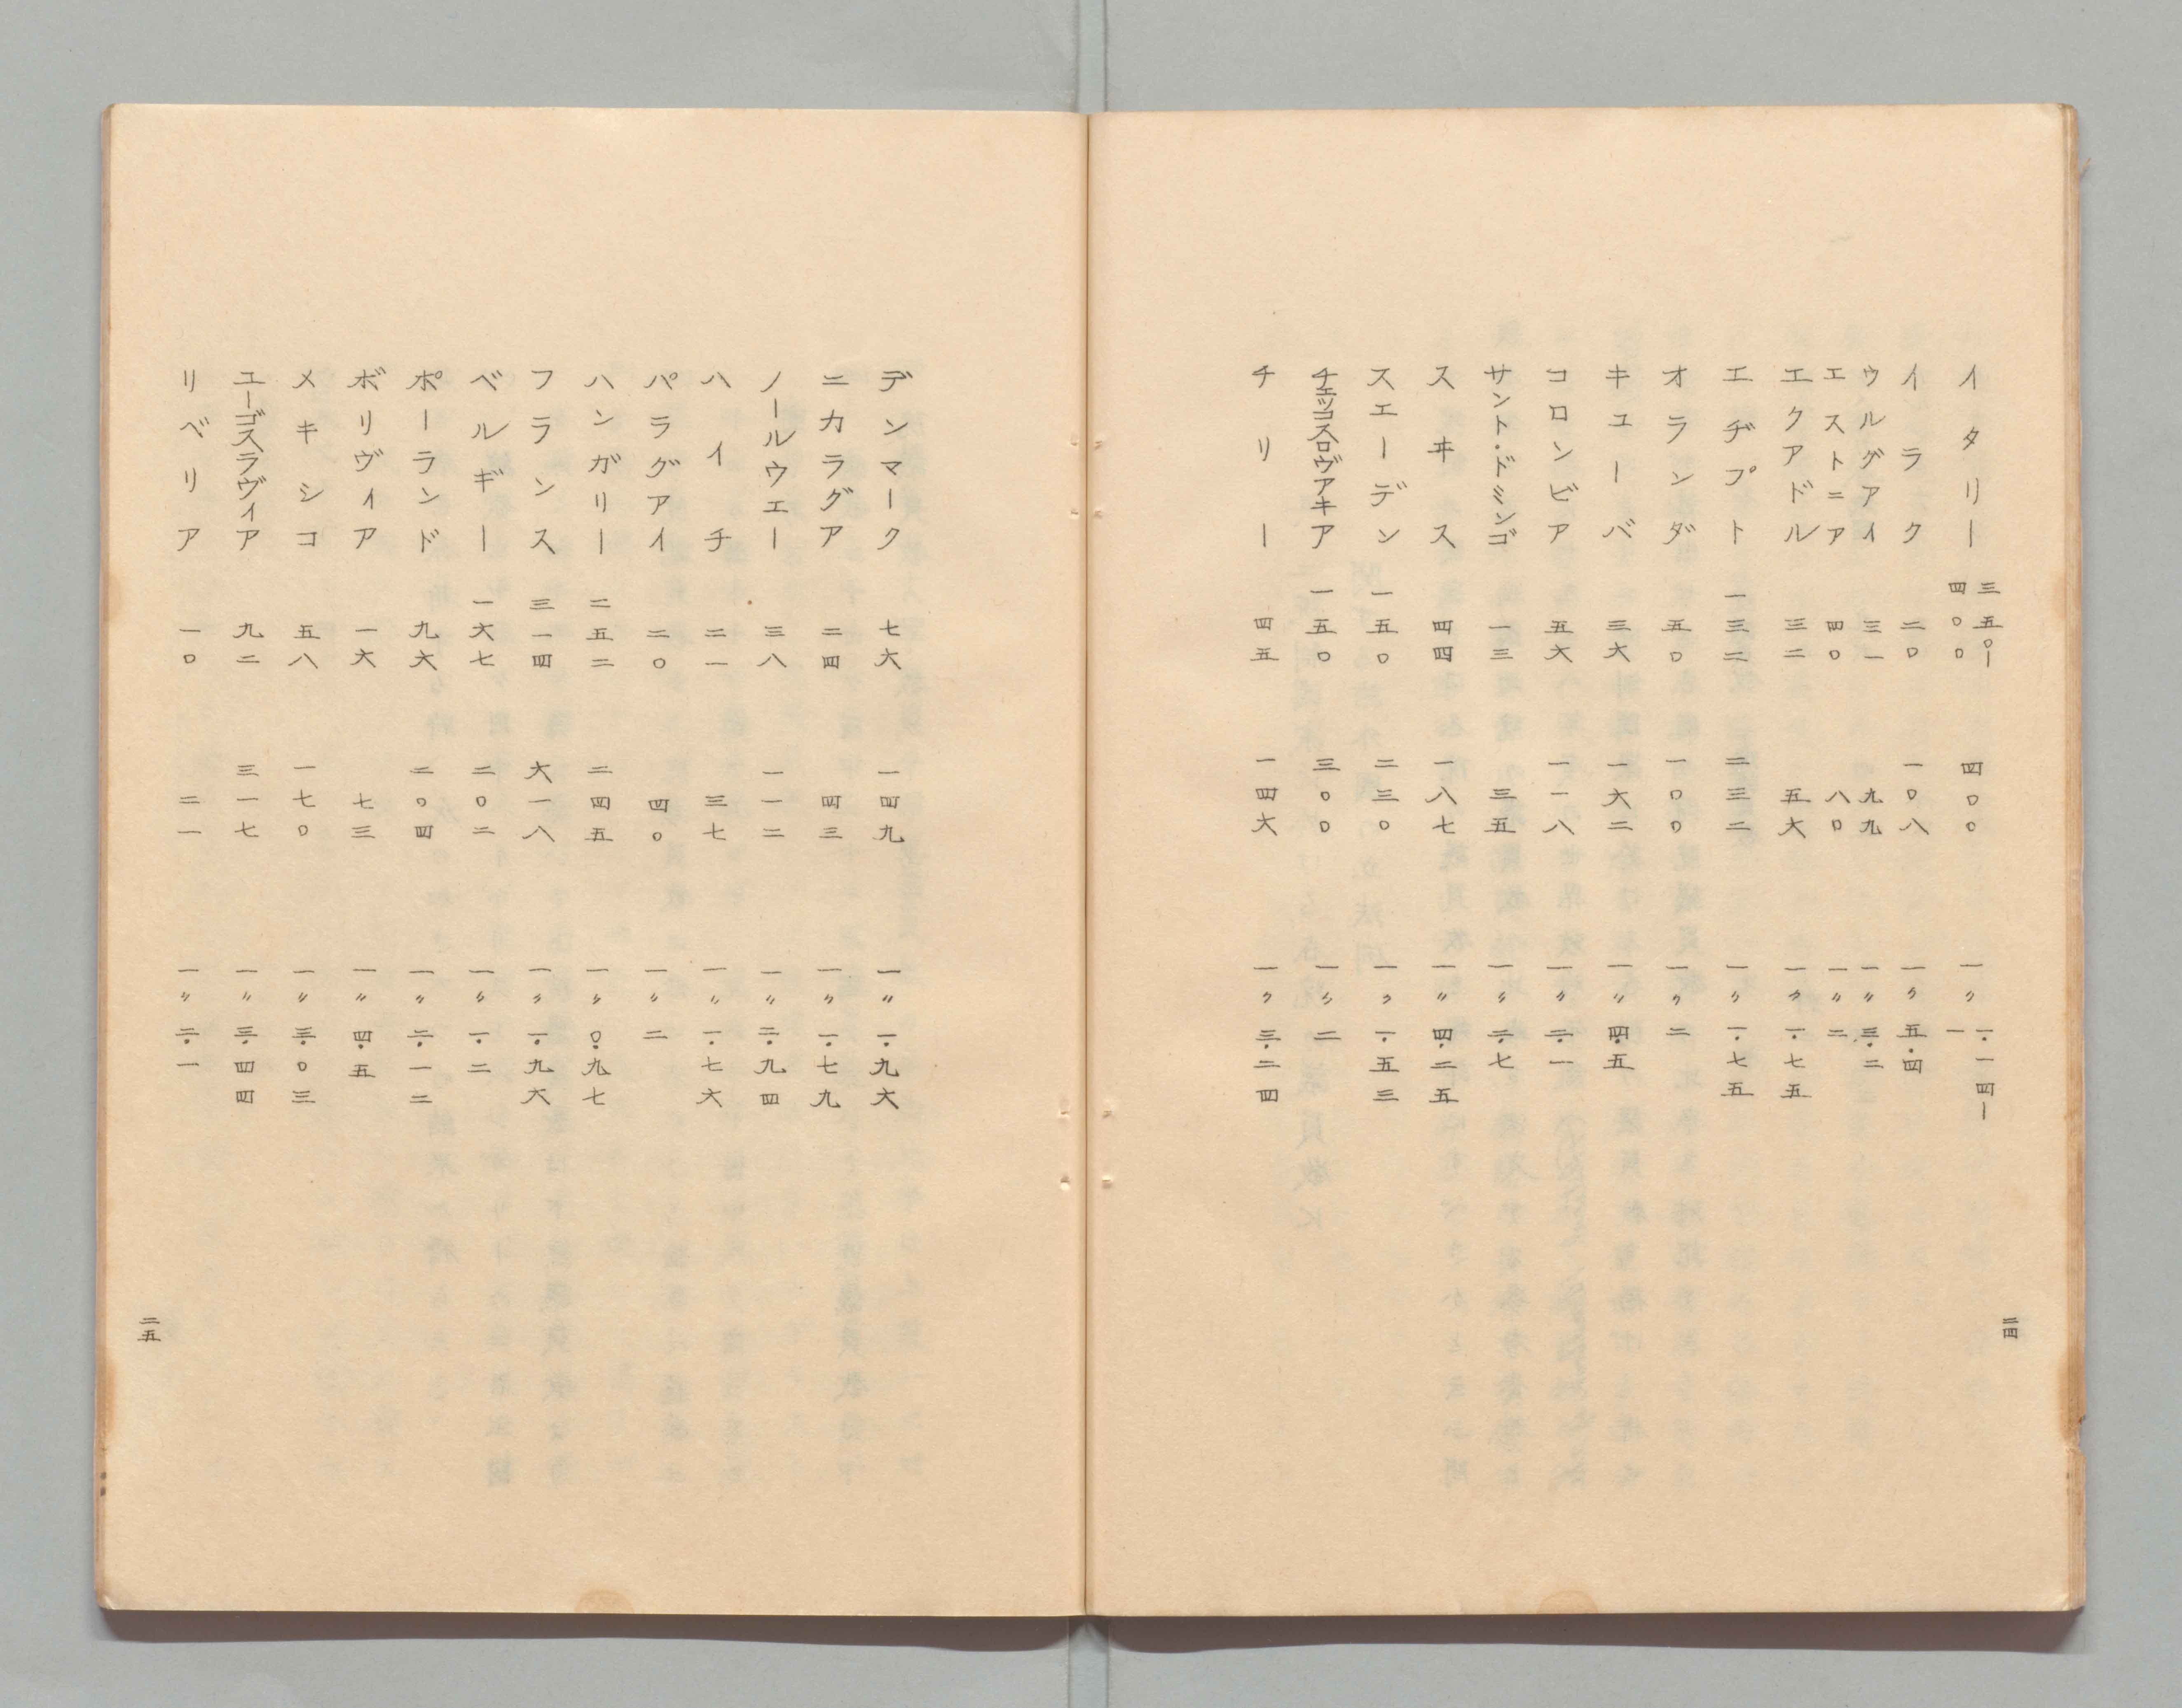 イタリー 三五〇ー四〇〇 四〇〇 一〃一・一四ー一
イラク 二〇 一〇八 一〃五・四
ウルグアイ 三一 九九 一〃三・二
エストニア 四〇 八〇 一〃二
エクアドル 三二 五六 一〃一・七五
エヂプト 一三二 二三二 一〃一・七五
オランダ 五〇 一〇〇 一〃二
キューバ 三六 一六二 一〃四・五
コロンビア 五六 一一八 一〃二・一
サント・ドミンゴ 一三 三五 一〃二・七
スヰス 四四 一八七 一〃四・二五
スエーデン 一五〇 二三〇 一〃一・五三
チェッコスロヴアキア 一五〇 三〇〇 一〃二
チリー 四五 一四六 一〃三・二四
二四
デンマーク 七六 一四九 一〃一・九六
ニカラグア 二四 四三 一〃一・七九
ノールウエー 三八 一一二 一〃二・九四
ハイチ 二一 三七 一〃一・七六
パラグアイ 二〇 四〇 一〃二
ハンガリー 二五二 二四五 一〃〇・九七
フランス 三一四 六一八 一〃一・九六
ベルギー 一六七 二〇二 一〃一・二
ポーランド 九六 二〇四 一〃二・一二
ボリヴィア 一六 七三 一〃四・五
メキシコ 五八 一七〇 一〃三・〇三
ユーゴスラヴィア 九二 三一七 一〃三・四四
リベリア 一〇 二一 一〃二・一
二五